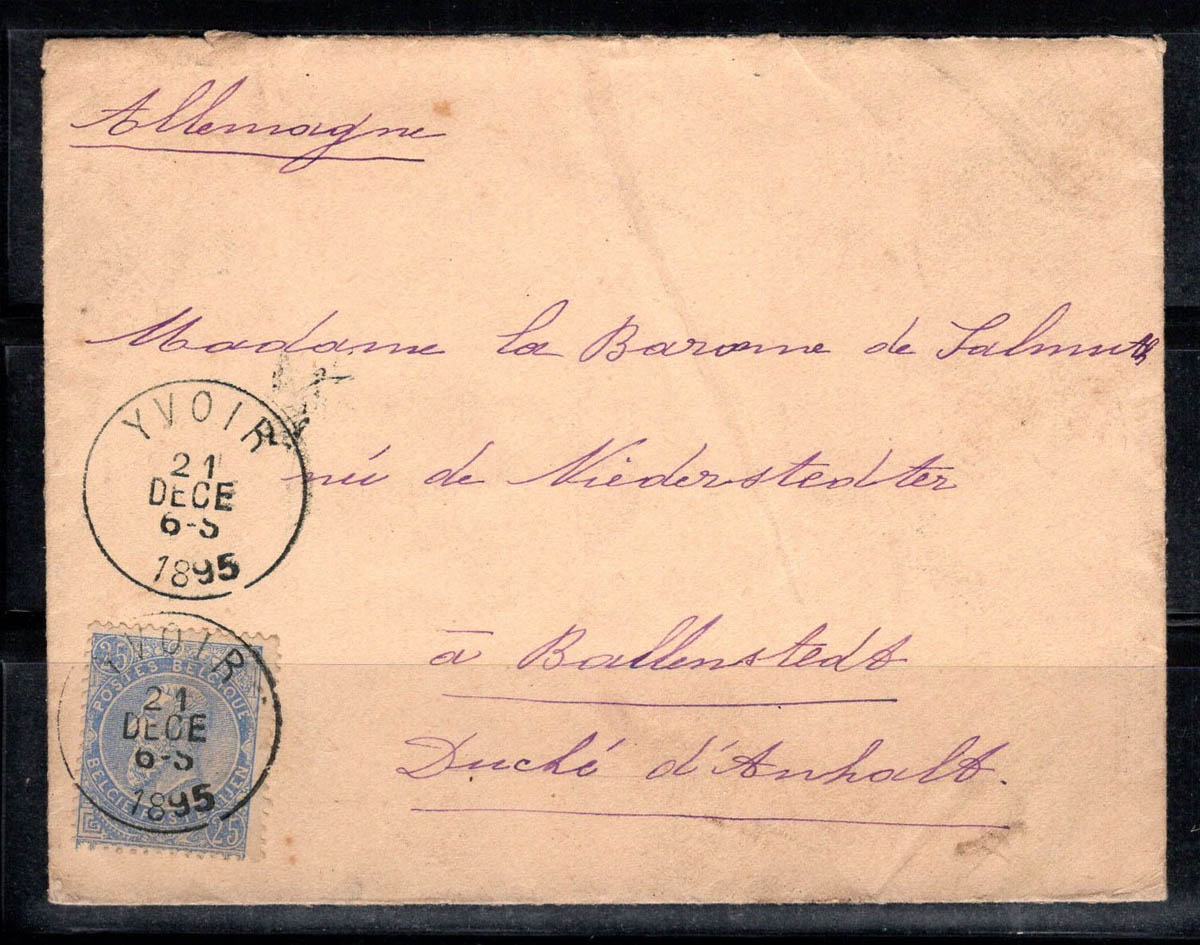 Allemagne
Madame la Baronne de Salmuth
née de Niederstedter
à Ballenstedt
Duché d'Anhalt.
YVOIR
21
DECE
6-S
1895
YVOIR
21
DECE
6-S
1895
25
POSTES BELGIQUE
BELGIE
25